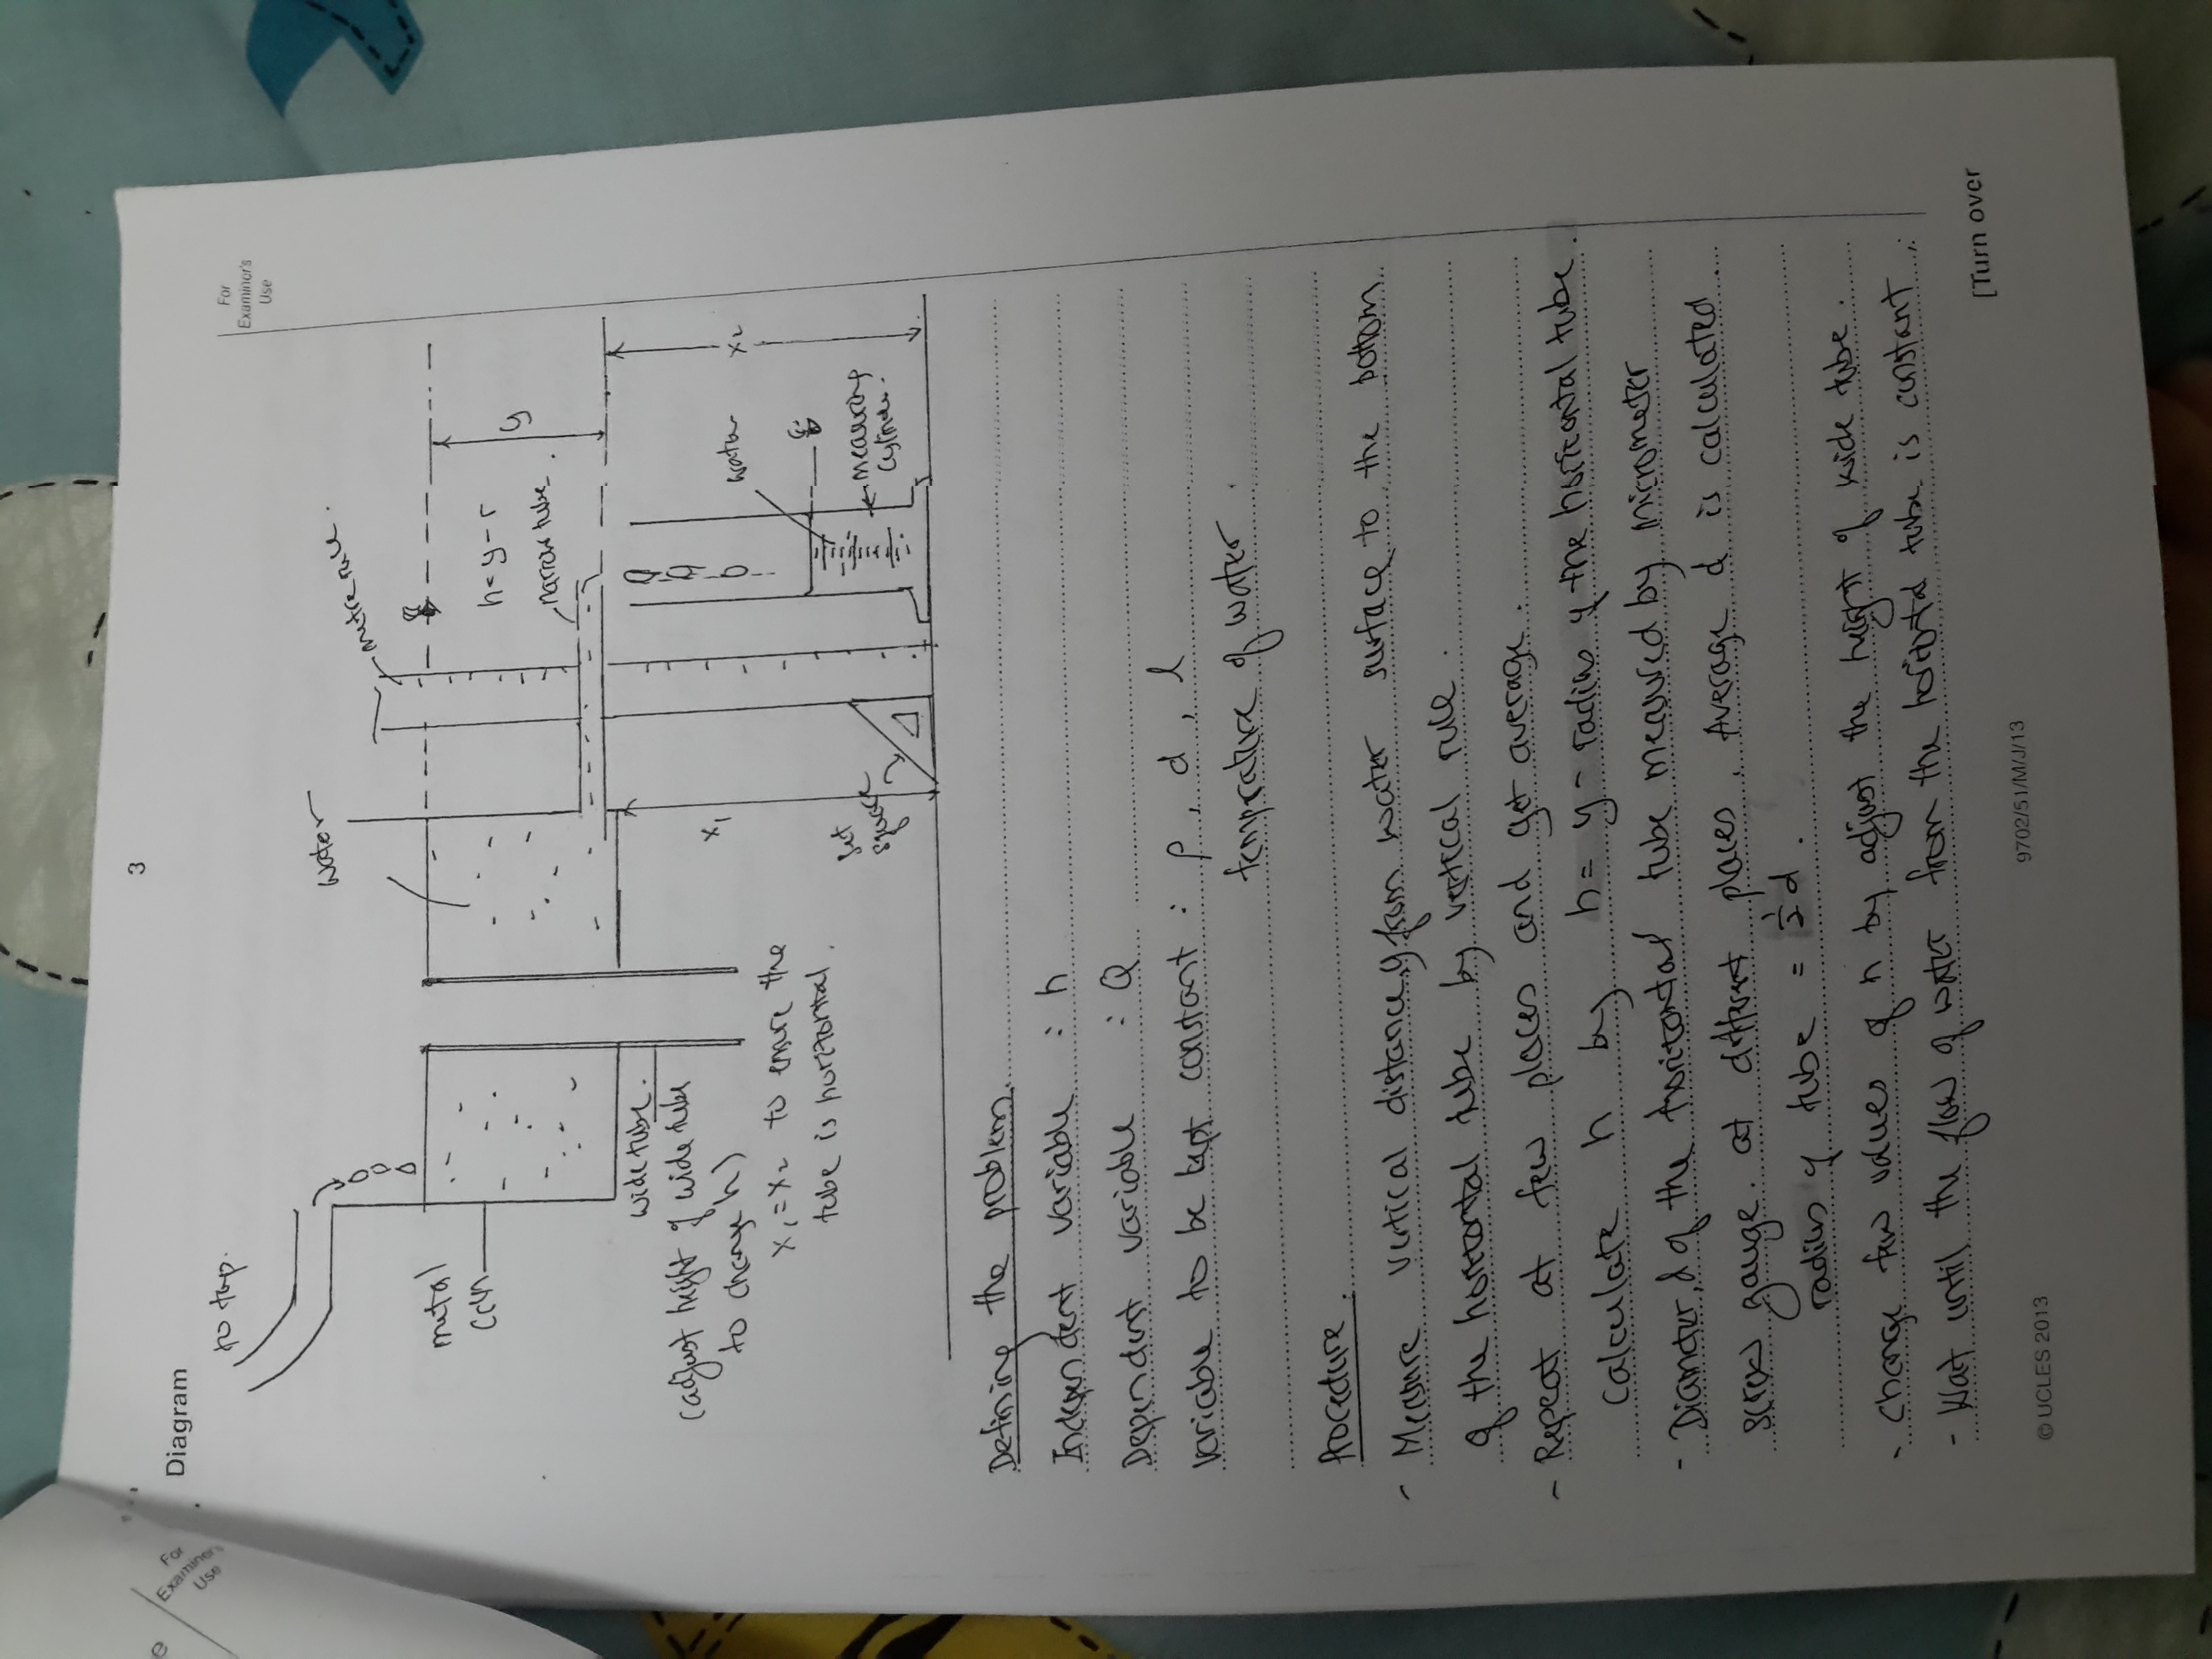 3
Diagram
For
Examiner's
Use
e
For
Examiner's
Use
to tap.
water
metre rule.
metal
can
h = y - r
y
narrow tube
wide tube.
(adjust height of wide tube
to change h)
x1 = x2 to ensure the
tube is horizontal.
x1
water
x2
set
square
measuring
cylinder.
Defining the problem.
Independent variable : h
Dependent variable : Q
variable to be kept constant : ρ, d, l
temprature of water.
Procedure.
- Measure vertical distance, y from water surface to the bottom
of the horizontal tube by vertical rule.
- Repeat at few places and get average.
calculate h by h = y - radius of the horizontal tube.
- Diameter, d of the horizontal tube measured by micrometer
screw gauge. at different places. Average d is calculated
radius of tube = ½d.
- change few values of h by adjust the height of wide tube.
- Wait until the flow of water from the horizontal tube is constant.
[Turn over
© UCLES 2013
9702/51/M/J/13